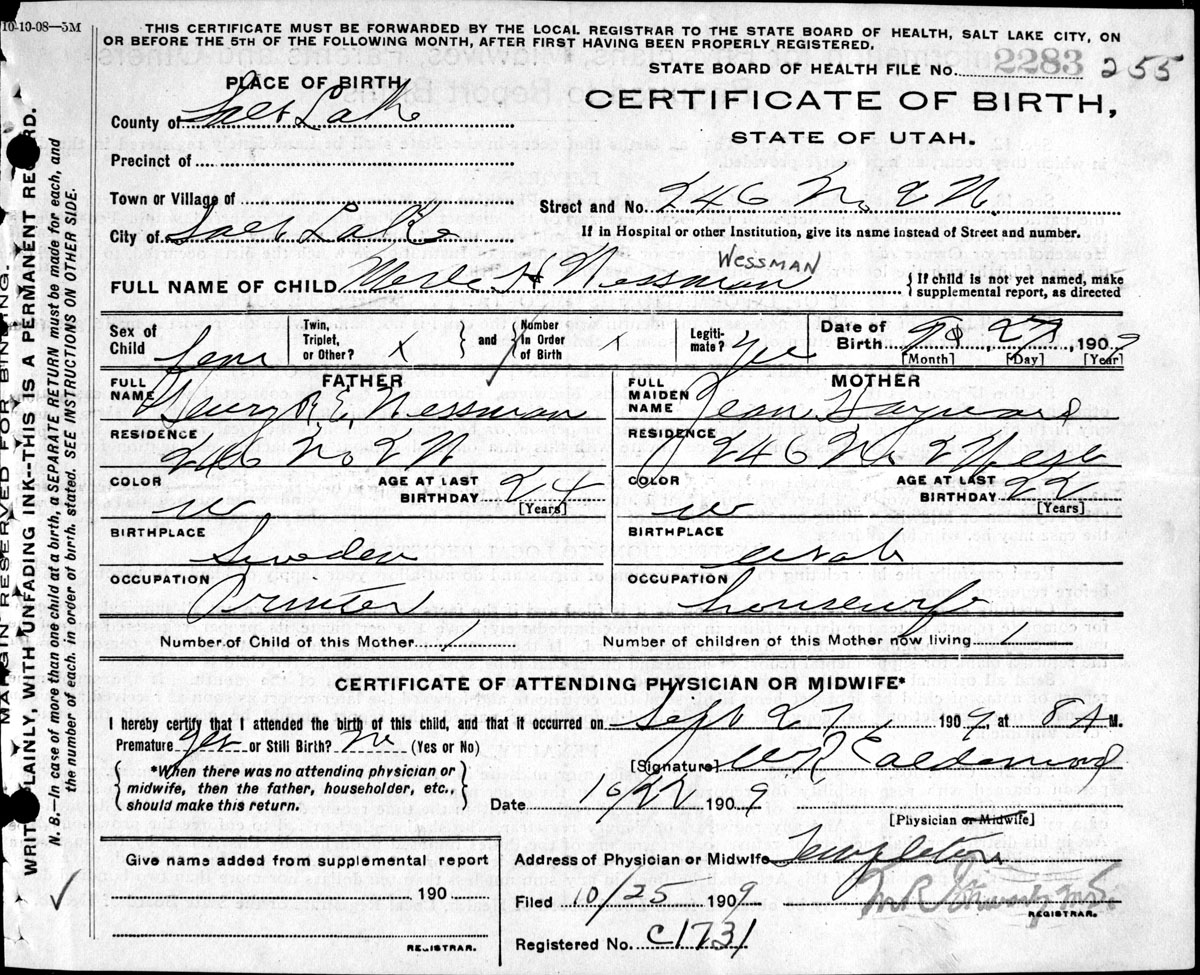 10-19-08—5M
THIS CERTIFICATE MUST BE FORWARDED BY THE LOCAL REGISTRAR TO THE STATE BOARD OF HEALTH, SALT LAKE CITY, ON
OR BEFORE THE 5TH OF THE FOLLOWING MONTH, AFTER FIRST HAVING BEEN PROPERLY REGISTERED.
STATE BOARD OF HEALTH FILE No. 2283 255
PLACE OF BIRTH
CERTIFICATE OF BIRTH,
STATE OF UTAH.
County of Salt Lake
Precinct of
Town or Village of
Street and No. 246 N. 2 W.
City of Salt Lake
If in Hospital or other Institution, give its name instead of Street and number.
WESSMAN
FULL NAME OF CHILD Merle H Wessman
{ If child is not yet named, make
supplemental report, as directed
Sex of Child Fem
Twin, Triplet, or Other? x } and { Number In Order of Birth x
Legiti-mate? yes
Date of Birth 9, 27 1909
[Month] [Day] [Year]
FATHER
FULL NAME E. Wessman
RESIDENCE 246 No 2 W
COLOR w
AGE AT LAST BIRTHDAY 24 [Years]
BIRTHPLACE Sweden
OCCUPATION Printer
MOTHER
FULL MAIDEN NAME Jean Hayward
RESIDENCE 246 No 2 West
COLOR w
AGE AT LAST BIRTHDAY 22 [Years]
BIRTHPLACE Utah
OCCUPATION housewife
Number of Child of this Mother 1
Number of children of this Mother now living 1
CERTIFICATE OF ATTENDING PHYSICIAN OR MIDWIFE*
I hereby certify that I attended the birth of this child, and that it occurred on Sept 27, 1909 at 8 A M.
Premature yes or Still Birth? no (Yes or No)
{ *When there was no attending physician or
midwife, then the father, householder, etc.,
should make this return. }
[Signature] Calderwood
Date 10/22 1909
[Physician or Midwife]
Give name added from supplemental report
190
REGISTRAR.
Address of Physician or Midwife Templeton
Filed 10/25 1909
REGISTRAR.
Registered No. C1731
MARGIN RESERVED FOR BINDING.
WRITE PLAINLY, WITH UNFADING INK--THIS IS A PERMANENT RECORD.
N. B.—In case of more than one child at a birth, a SEPARATE RETURN must be made for each, and
the number of each, in order of birth, stated. SEE INSTRUCTIONS ON OTHER SIDE.